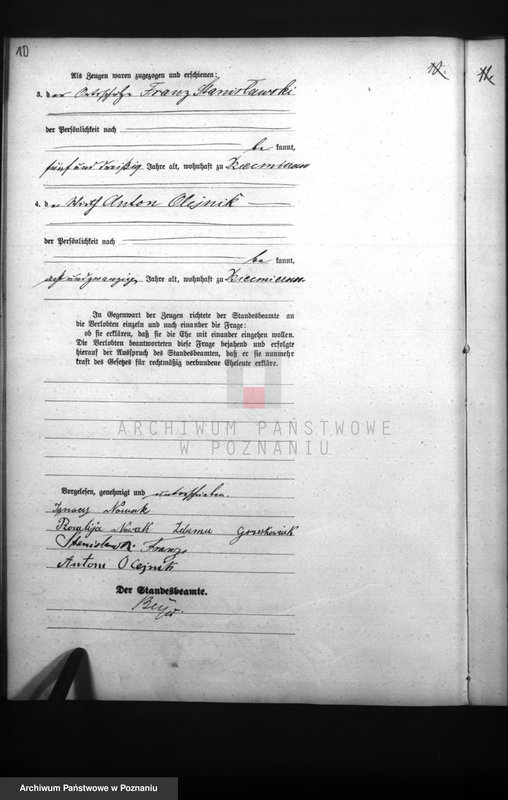 10
12.
11.
Als Zeugen waren zugezogen und erschienen:
3. der Ortsschulze Franz Stanisławski
der Persönlichkeit nach
be kannt,
fünf und dreißig Jahre alt, wohnhaft zu
4. der Wirth Anton Olejnik
der Persönlichkeit nach
be kannt,
acht und zwanzig Jahre alt, wohnhaft zu
In Gegenwart der Zeugen richtete der Standesbeamte an
die Verlobten einzeln und nach einander die Frage:
ob sie erklären, daß sie die Ehe mit einander eingehen wollen.
Die Verlobten beantworteten diese Frage bejahend und erfolgte
hierauf der Ausspruch des Standesbeamten, daß er sie nunmehr
kraft des Gesetzes für rechtmäßig verbundene Eheleute erkläre.
ARCHIWUM PAŃSTWOWE
W POZNANIU
Vorgelesen, genehmigt und unterschrieben.
Ignacy Nowak
Nowak
Franz
Antoni Olejnik
Der Standesbeamte.
Archiwum Państwowe w Poznaniu